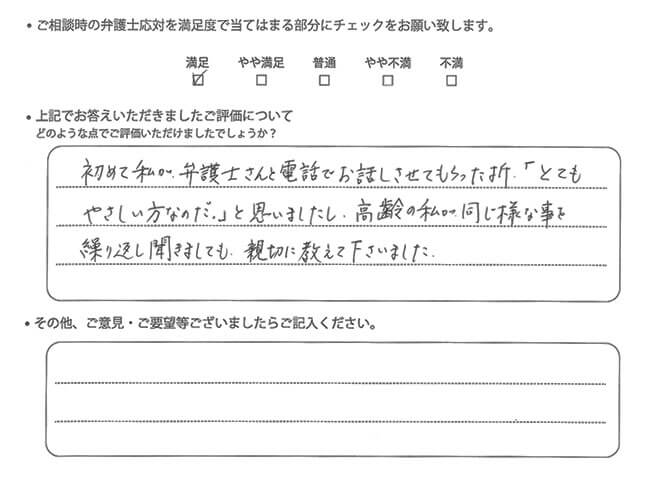 • ご相談時の弁護士応対を満足度で当てはまる部分にチェックをお願い致します。
満足 やや満足 普通 やや不満 不満
☑ ☐ ☐ ☐ ☐
• 上記でお答えいただきましたご評価について
どのような点でご評価いただけましたでしょうか？
初めて私が、弁護士さんと電話でお話しさせてもらった折、「とても
やさしい方なのだ。」と思いましたし、高齢の私が、同じ様な事を
繰り返し聞きましても、親切に教えて下さいました。
• その他、ご意見・ご要望等ございましたらご記入ください。